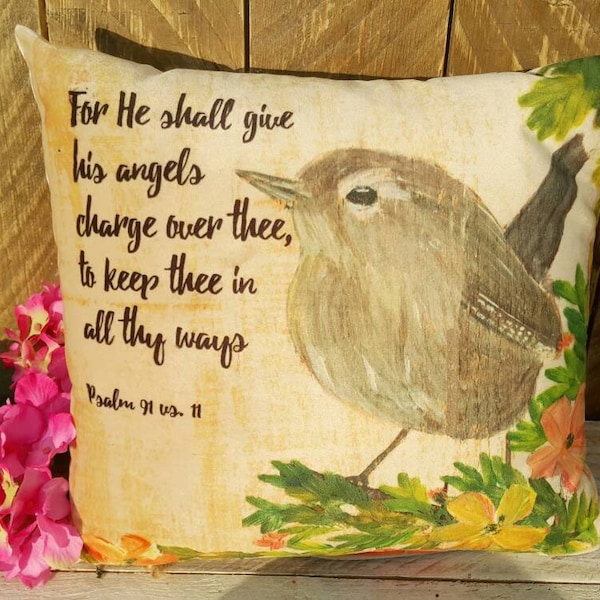 For He shall give
his angels
charge over thee,
to keep thee in
all thy ways
Psalm 91 vs. 11